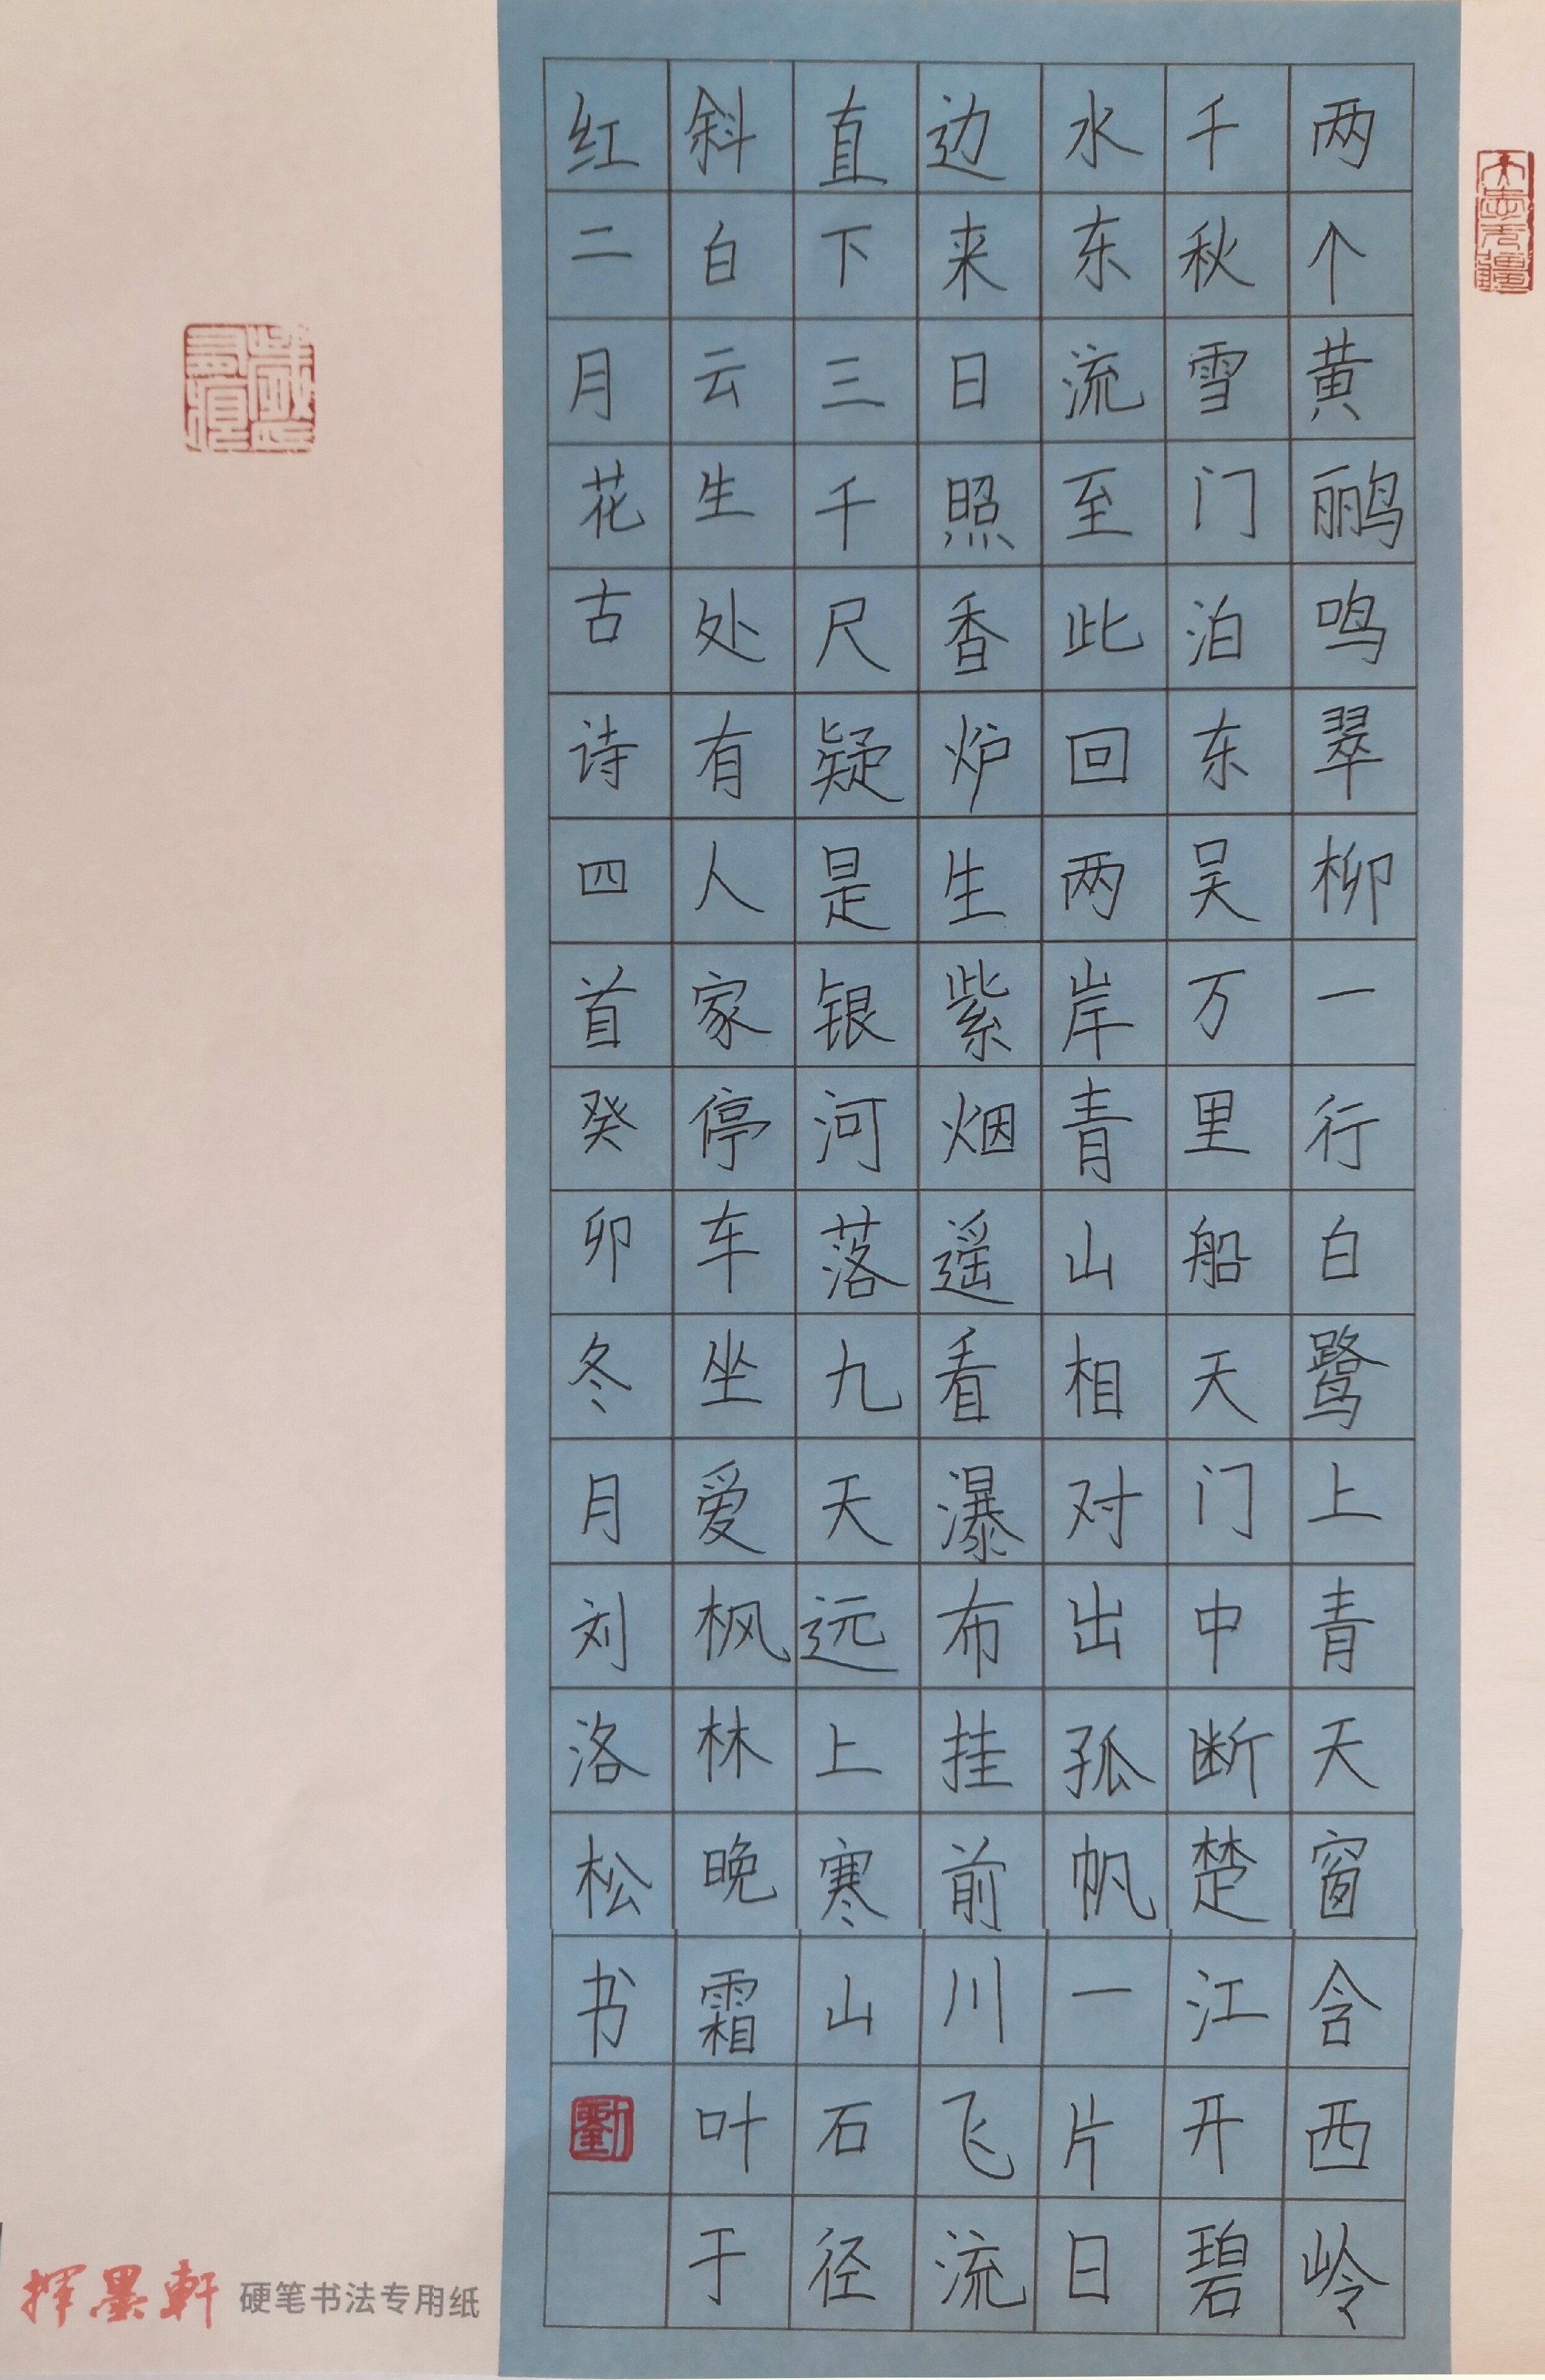 两个黄鹂鸣翠柳一行白鹭上青天窗含西岭
千秋雪门泊东吴万里船天门中断楚江开碧
水东流至此回两岸青山相对出孤帆一片日
边来日照香炉生紫烟遥看瀑布挂前川飞流
直下三千尺疑是银河落九天远上寒山石径
斜白云生处有人家停车坐爱枫林晚霜叶于
红二月花古诗四首癸卯冬月刘洛松书
劉
揮墨軒 硬笔书法专用纸